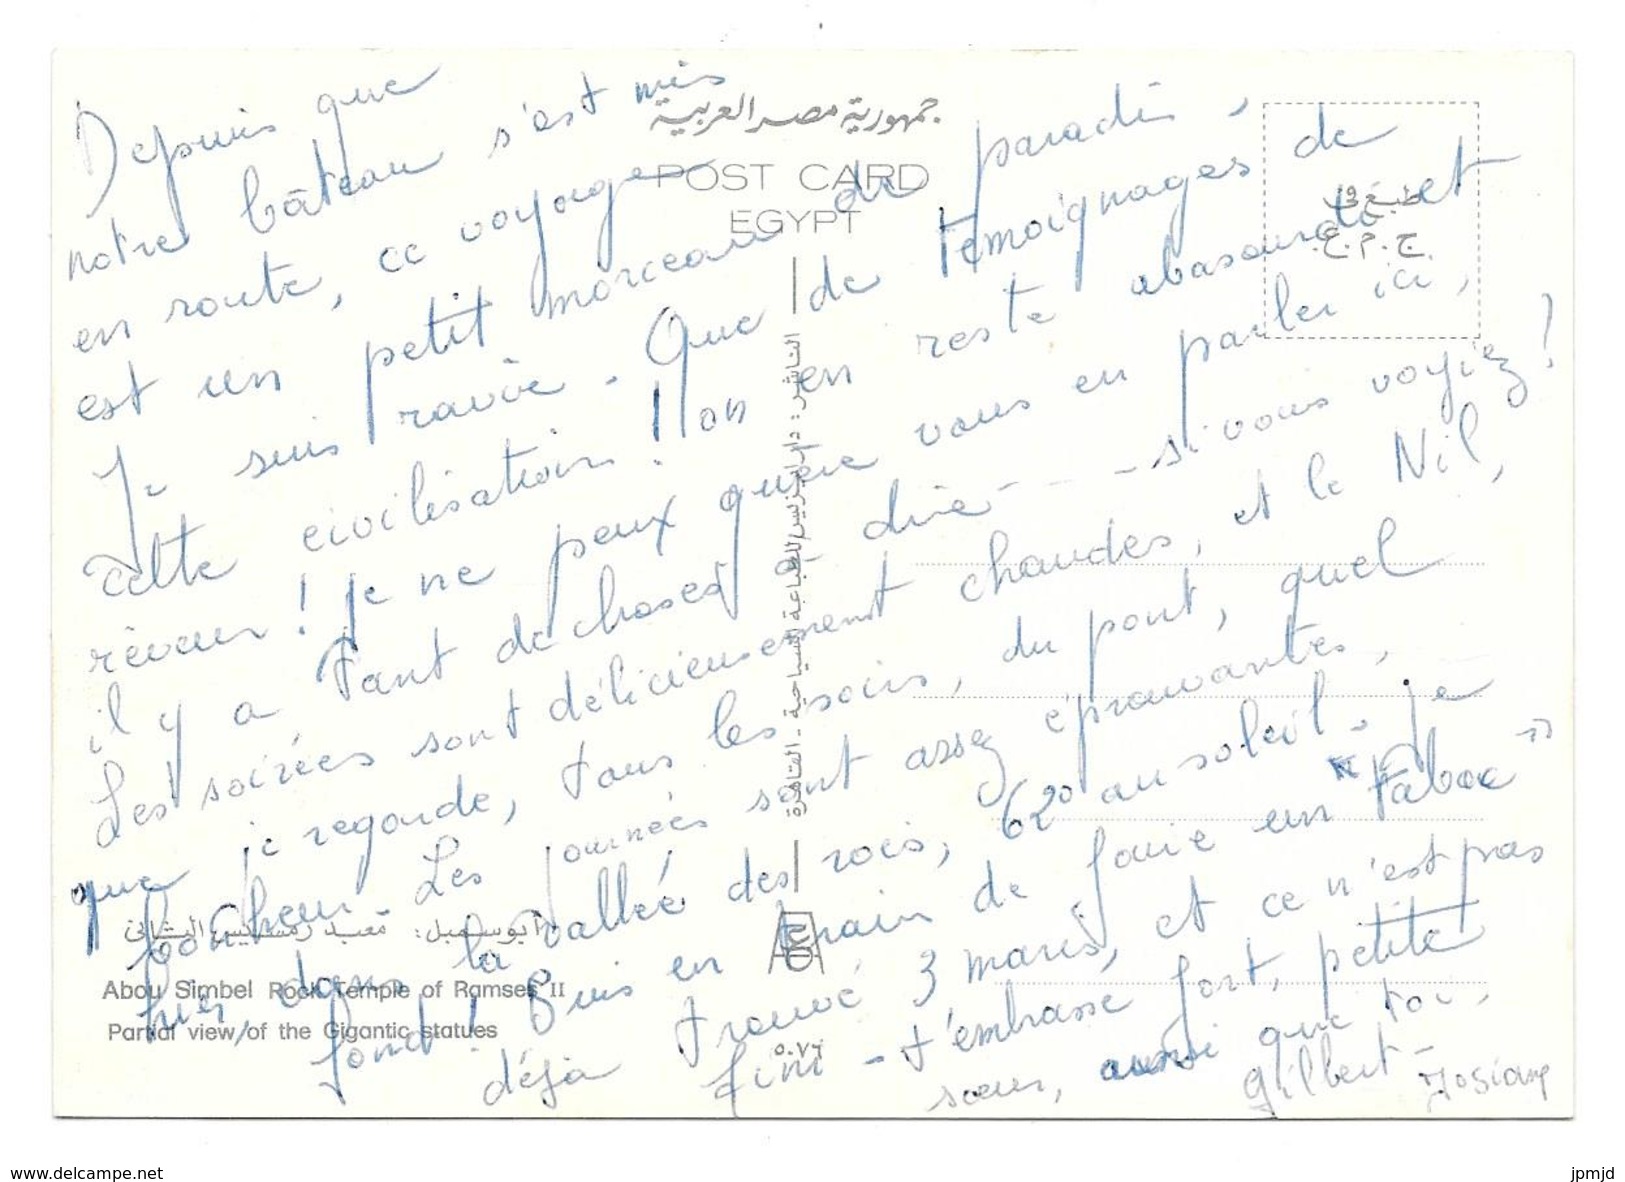 جمهورية مصر العربية
POST CARD
EGYPT
طبع في
ج.م.ع.
Depuis que
notre bâteau s'est mis
en route, ce voyage
est un petit morceau de paradis.
Je suis ravie. Que de témoignages de
cette civilisation ! on en reste abasourdi et
rêveur ! je ne peux guère vous en parler ici,
il y a tant de choses à dire - - - si vous voyiez !
Les soirées sont délicieusement chaudes, et le Nil,
que je regarde, tous les soirs, du pont, quel
bonheur. Les journées sont assez éprouvantes,
hier, dans la vallée des rois, 62° au soleil. je
fond ! Suis en train de faire un "Tabac"
déjà trouvé 3 maris, et ce n'est pas
fini - t'embrasse fort, petite
soeur, aussi que toi,
Gilbert -
Josiane
الناشر : دار لهنرت للطباعة السياحية - القاهرة
أبوسمبل : معبد رمسيس الثانى
Abou Simbel Rock Temple of Ramses II
Partial view of the Gigantic statues
٥٠٧٦
www.delcampe.net
jpmjd